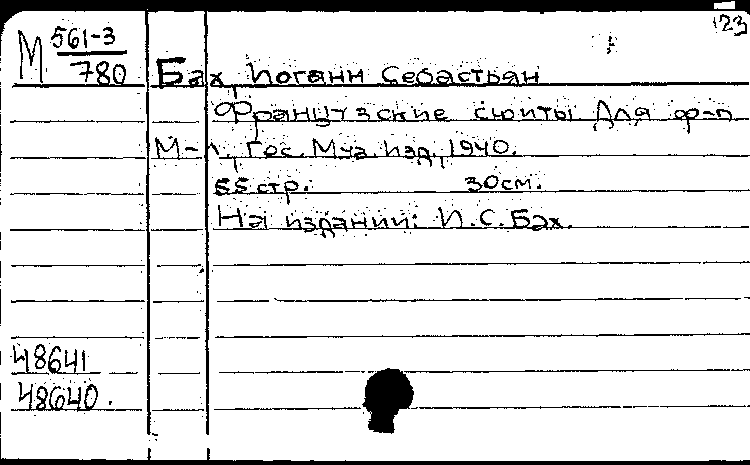 123
М 561-3
780
Бах, Иоганн Себастьян
Французские сюиты для ф-п
М-Л., Гос. Муз. изд., 1940.
55 стр. 30см.
На издании: И.С. Бах.
48641
48640.